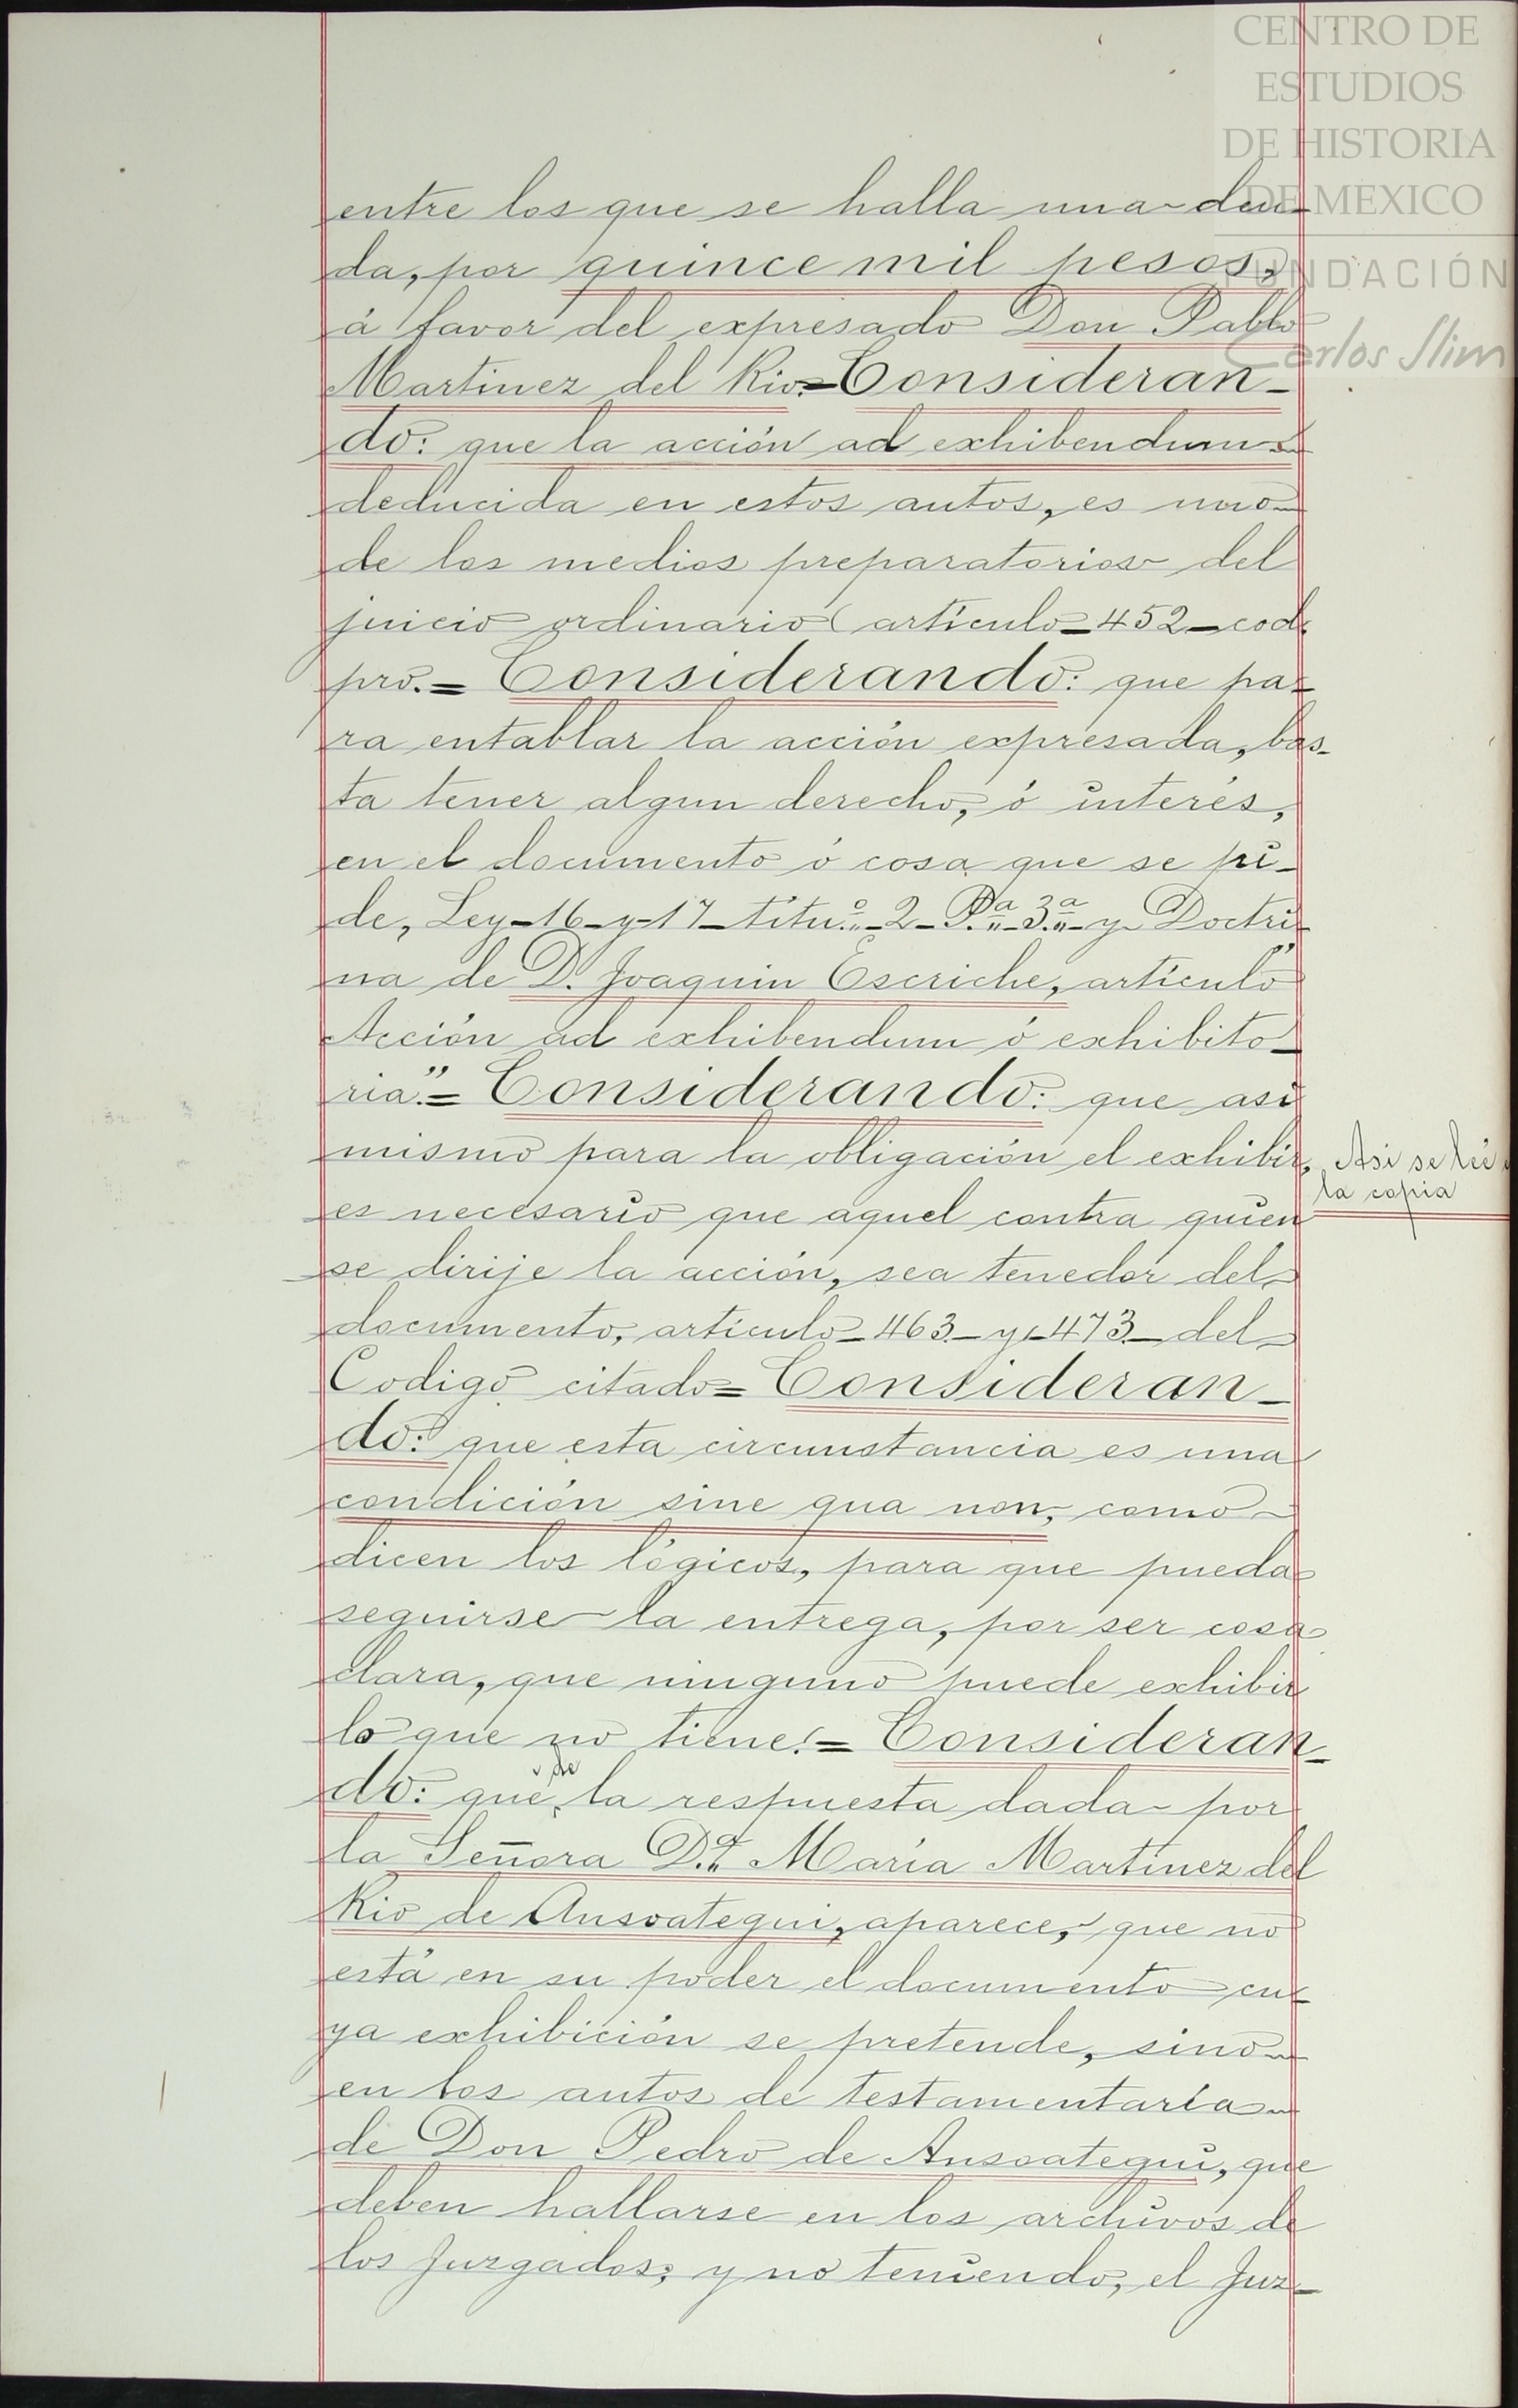 CENTRO DE
ESTUDIOS
DE HISTORIA
DE MEXICO
FUNDACIÓN
Carlos Slim
entre los que se halla una deu-
da, por quince mil pesos,
á favor del expresado Don Pablo
Martinez del Rio.=Consideran-
do: que la acción ad exhibendum
deducida en estos autos, es uno
de los medios preparatorios del
juicio ordinario (artículo-452-cod.
pro.= Considerando: que pa-
ra entablar la acción expresada, bas-
ta tener algun derecho, ó interés,
en el documento ó cosa que se pi-
de, Ley-16-y-17-títu.º-2-P.ª-3.ª-y Doctri-
na de D. Joaquin Escriche, artículo"
Acción ad exhibendum ó exhibito-
ria".= Considerando: que asi
mismo para la obligación el exhibir,
es necesario que aquel contra quien
se dirije la acción, sea tenedor del
documento, artículo-463-y-473-del
Codigo citado= Consideran-
do: que esta circunstancia es una
condición sine qua non, como
dicen los lógicos, para que pueda
seguirse la entrega, por ser cosa
clara, que ninguno puede exhibir
lo que no tiene.= Consideran-
do: que de la respuesta dada por
la Señora D.ª María Martínez del
Rio de Ansoategui, aparece, que no
está en su poder el documento cu-
ya exhibición se pretende, sino
en los autos de testamentaría
de Don Pedro de Ansoategui, que
deben hallarse en los archivos de
los Juzgados; y no teniendo, el Juz-
Asi se
la copia